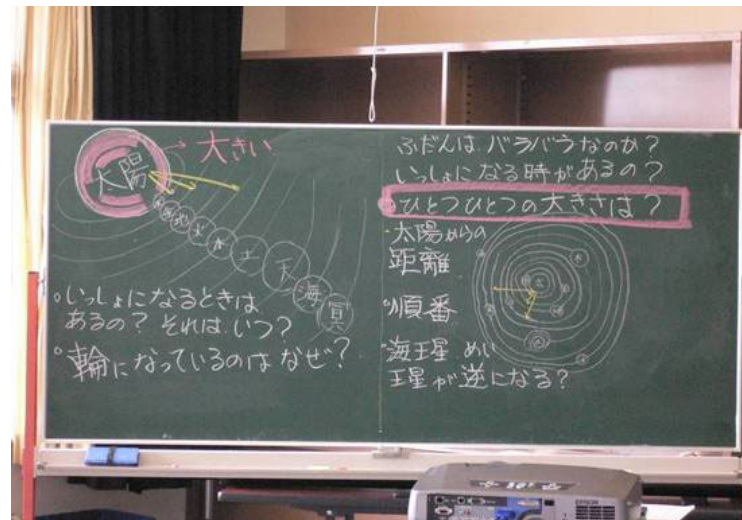 太陽 → 大きい
水金地火木土天海冥
・いっしょになるときは
あるの? それは いつ?
・輪になっているのは なぜ?
ふだんは、バラバラなのか?
いっしょに なる時があるの?
・ひとつひとつの大きさは?
・太陽からの
距離
順番
・海王星 めい
王星が逆になる?
EPSON